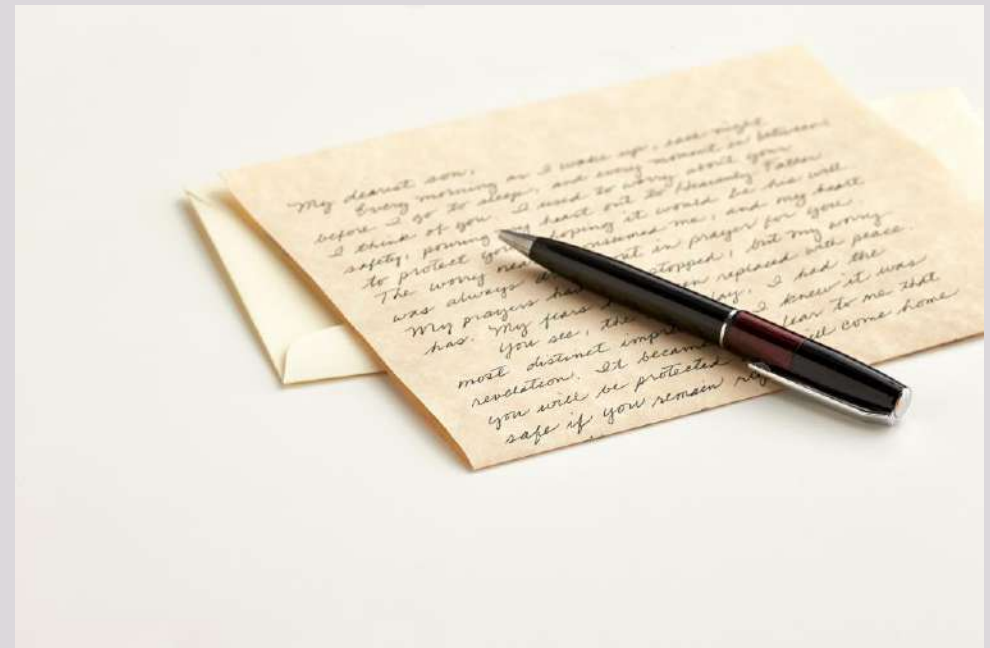 My dearest son,
Every morning as I wake up, each night
before I go to sleep, and every moment in between
I think of you. I used to worry about your
safety, pouring my heart out to Heavenly Father
to protect you, hoping it would be his will
The worry nea consumed me, and my heart
was always in prayer for you
My prayers ha stopped, but my worry
has. My fears en replaced with peace.
You see, the day, I had the
most distinct impr I knew it was
revelation. It becam lear to me that
you will be protected ill come home
safe if you remain